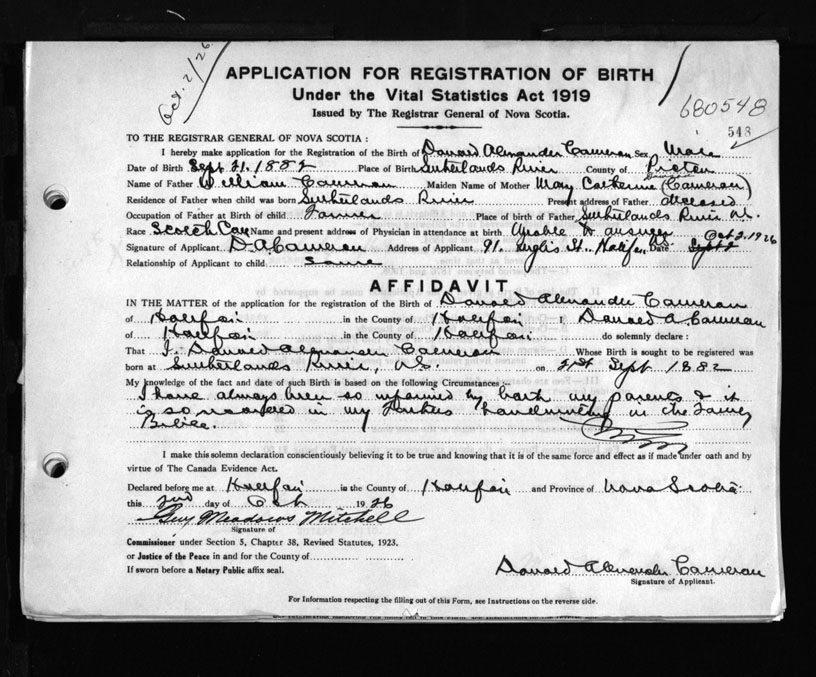 Oct. 2/26
APPLICATION FOR REGISTRATION OF BIRTH
Under the Vital Statistics Act 1919
Issued by The Registrar General of Nova Scotia.
680548
548
TO THE REGISTRAR GENERAL OF NOVA SCOTIA :
I hereby make application for the Registration of the Birth of Donald Alexander Cameron Sex Male
Date of Birth Sept 21. 1882 Place of Birth Sutherlands River County of Pictou
Name of Father William Cameron Maiden Name of Mother Mary Catherine (Cameron)
Residence of Father when child was born Sutherlands River Present address of Father deceased
Occupation of Father at Birth of child Farmer Place of birth of Father Sutherlands River N.S.
Race Scotch Can Name and present address of Physician in attendance at birth Unable to answer
Signature of Applicant D A Cameron Address of Applicant 91. Inglis St. Halifax N.S. Date Sept 2 Oct 2. 1926
Relationship of Applicant to child same
AFFIDAVIT
IN THE MATTER of the application for the registration of the Birth of Donald Alexander Cameron
of Halifax in the County of Halifax I Donald A Cameron
of Halifax in the County of Halifax do solemnly declare :
That I. Donald Alexander Cameron Whose Birth is sought to be registered was
born at Sutherlands River, N.S. on 21st Sept 1882
My knowledge of the fact and date of such Birth is based on the following Circumstances:
I have always been so informed by both my parents & it
is so recorded in my Fathers handwriting in the Family
Bible.
I make this solemn declaration conscientiously believing it to be true and knowing that it is of the same force and effect as if made under oath and by
virtue of The Canada Evidence Act.
Declared before me at Halifax in the County of Halifax and Province of Nova Scotia
this 2nd day of Oct 1926
Guy Meadows Mitchell
Signature of
Commissioner under Section 5, Chapter 38, Revised Statutes, 1923,
or Justice of the Peace in and for the County of
If sworn before a Notary Public affix seal.
Donald Alexander Cameron
Signature of Applicant.
For Information respecting the filling out of this Form, see Instructions on the reverse side.